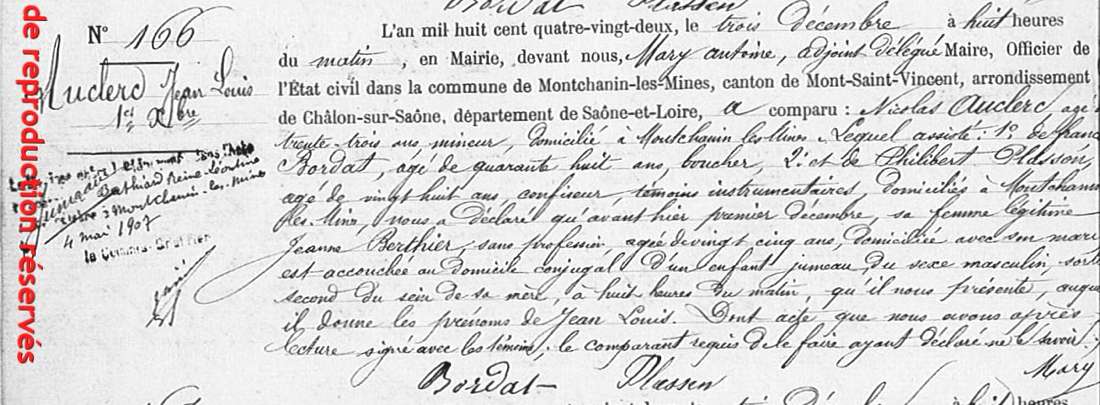 Bordat Plassen
N° 166
Auclerc Jean Louis
1er Xbre
L'an mil huit cent quatre-vingt-deux, le trois Décembre à huit heures
du matin, en Mairie, devant nous, Mary antoine, adjoint délégué Maire, Officier de
l'État civil dans la commune de Montchanin-les-Mines, canton de Mont-Saint-Vincent, arrondissement
de Châlon-sur-Saône, département de Saône-et-Loire, a comparu : Nicolas Auclerc agé
trente-trois ans, mineur, domicilié à Montchanin les Mines. Lequel assisté : 1° de
Bordat, agé de quarante huit ans, boucher, 2° et de Philibert Plasson,
agé de vingt huit ans, confiseur, témoins instrumentaires, domiciliés à Montchanin
les Mines, nous a déclaré qu'avant hier premier décembre, sa femme légitime
Jeanne Berthier, sans profession agée de vingt cinq ans, domiciliée avec son mari
est accouchée au domicile conjugal d'un enfant jumeau, du sexe masculin, sorti
second du sein de sa mère, à huit heures du matin, qu'il nous présente, auquel
il donne les prénoms de Jean Louis. Dont acte que nous avons après
lecture signé avec les témoins; le comparant requis de le faire ayant déclaré ne le savoir.
Mary
Bordat Plassen
Berthiard Reine Léontine
à Montchanin-les-Mines
4 mai 1907
le Commis-Greffier
de reproduction réservés
à huit heures